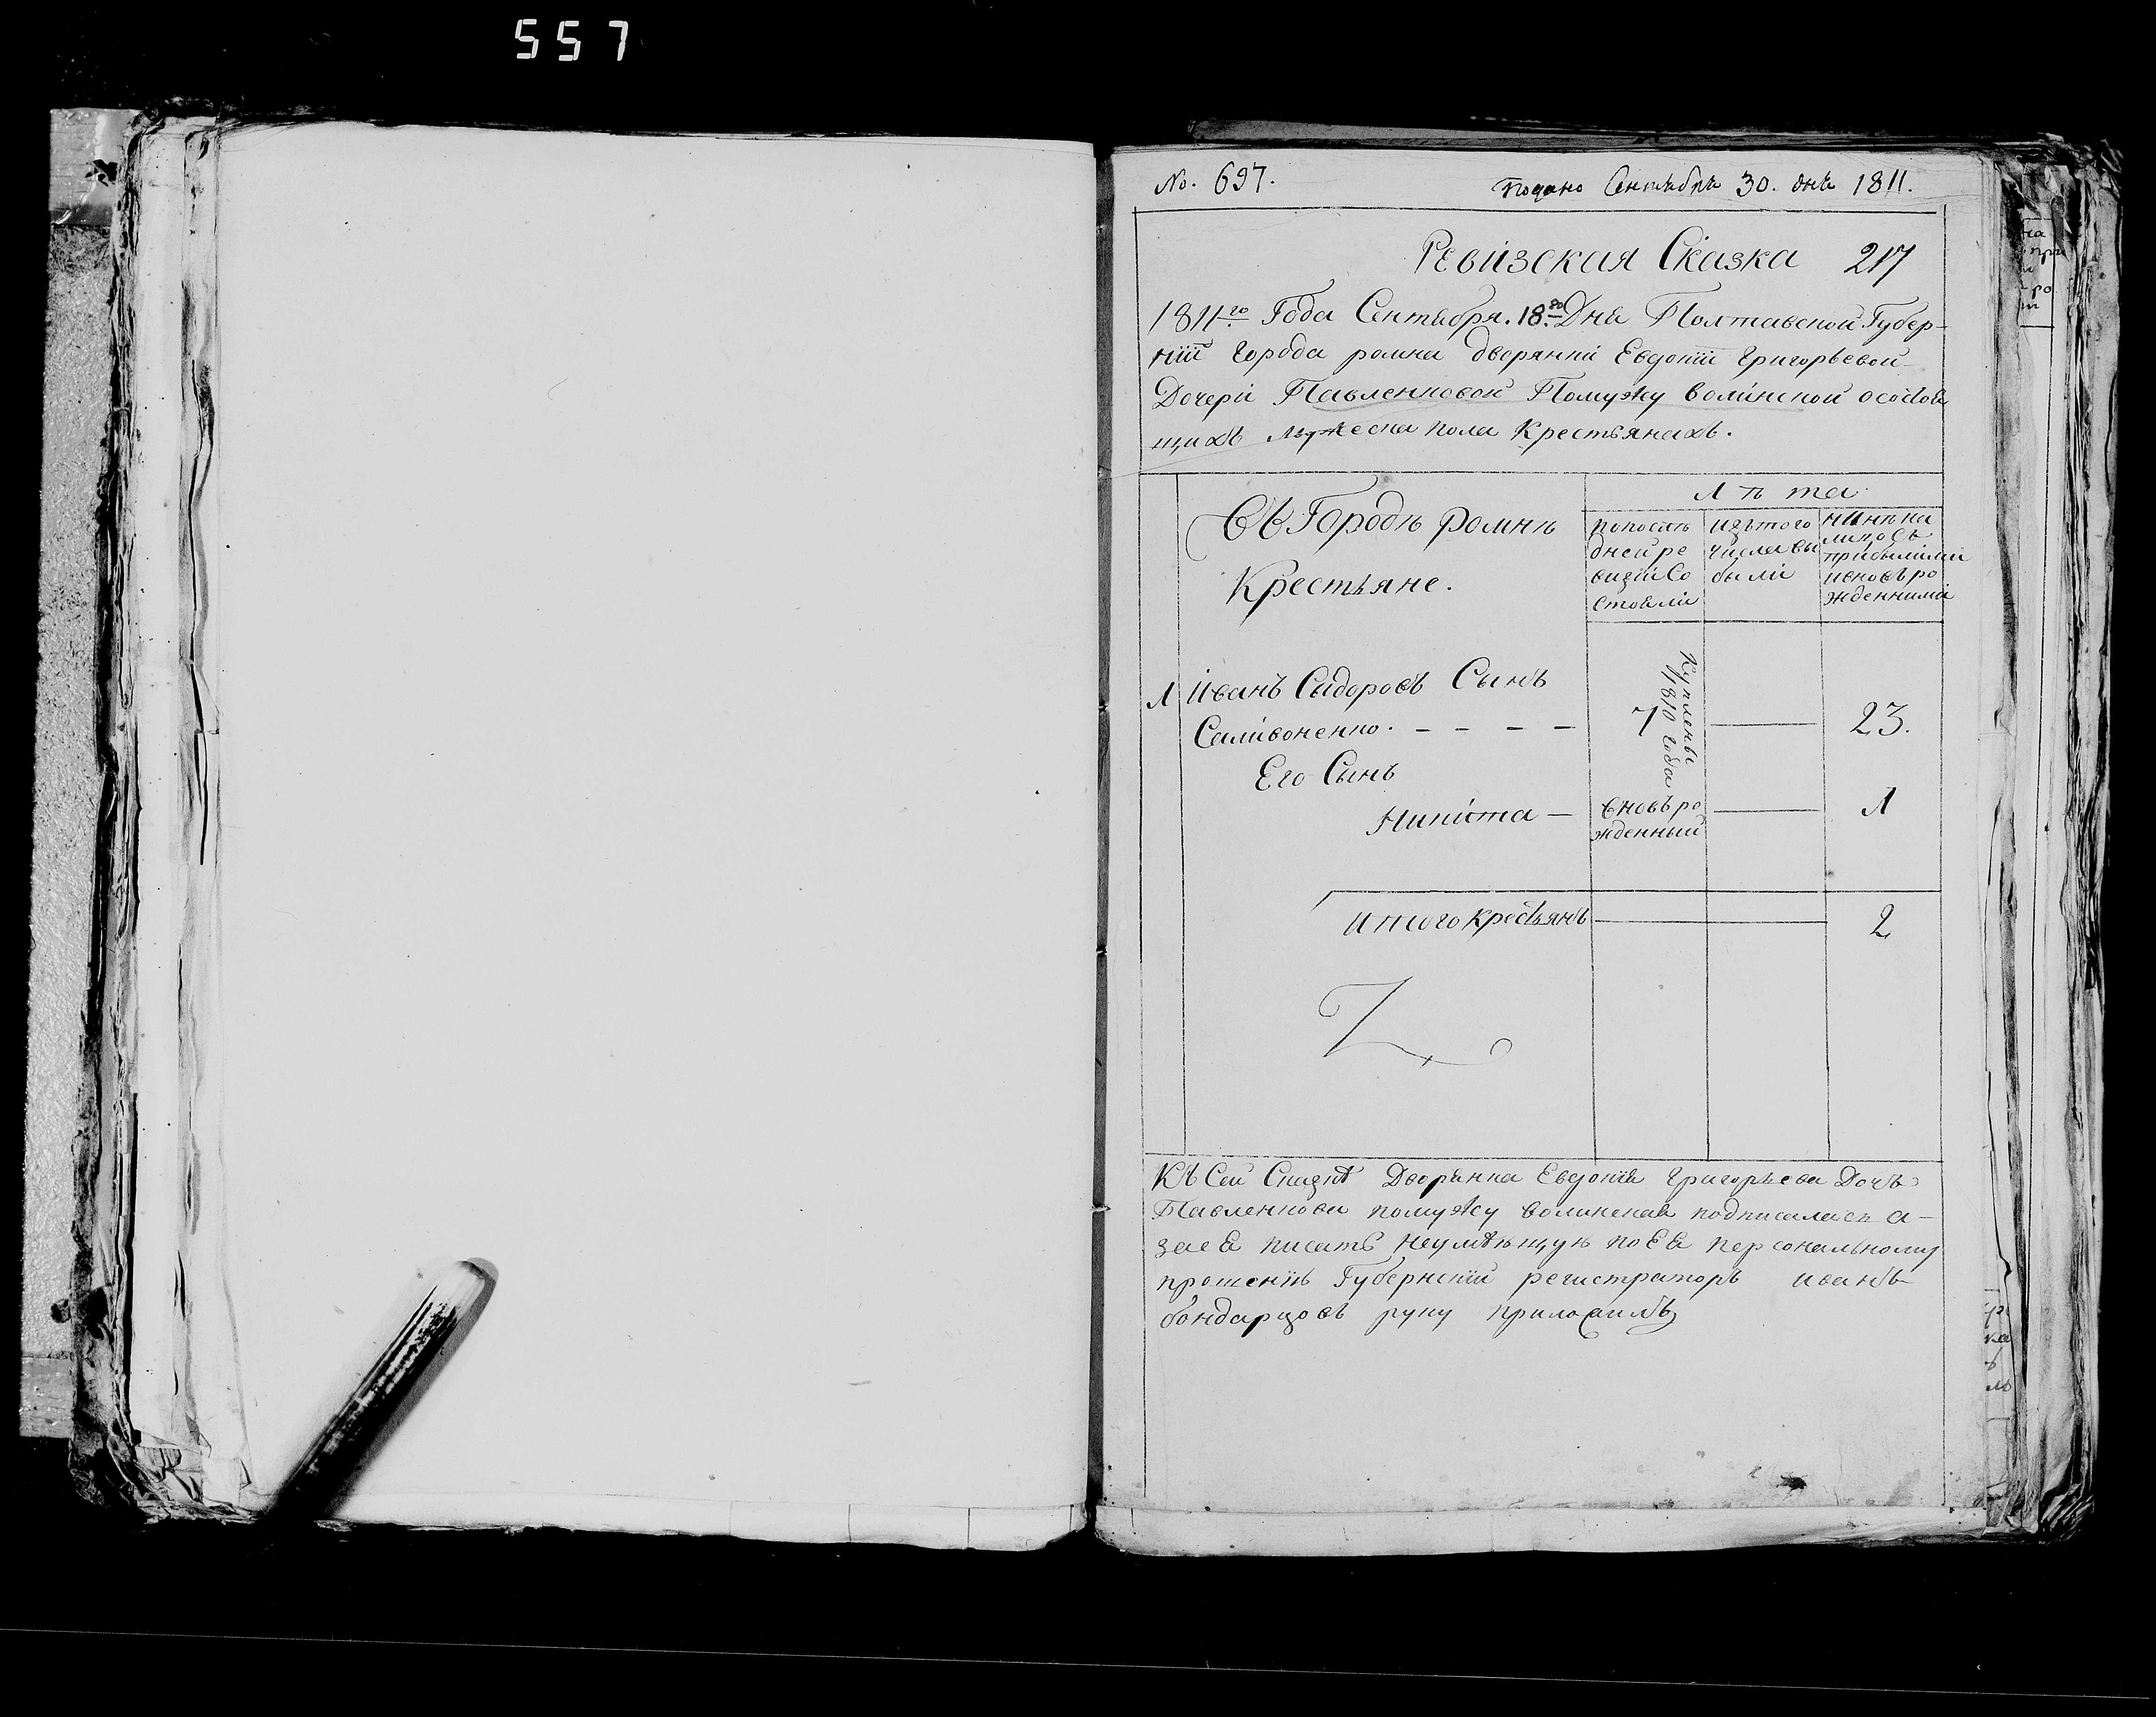 557
No. 697. подано Сентября 30. дня 1811.
Ревизская Сказка 217
1811го Года Сентября. 18го Дня Полтавской Губер-
нїи города ромна дворянки Евдокїи Григорьевой
Дочери Павленковой Помужу волинской осостоя
щихъ мужеска пола Крестьянахъ.
Въ Городѣ ромнѣ
Крестьяне.
Лѣта
попослѣ
дней ре
визїи Со
стояли
изътого
числа вы
были
нинѣ на
лицо съ
прибилими
иновъ ро
жденними
Куплены
1810 года
1 Иванъ Сидоровъ Сынъ
Саливоненко. - - - - 7 — 23.
Его Сынъ
Никита — вновъ ро
жденный — 1
итого крестьянъ — 2
Къ Сей Сказкѣ Дворянка Евдокїя Григорьева Дочь
Павленкова помужу волинская подписалась а-
зaея писать неумѣющую по Ея персональному
прошенїю Губернскїй регистраторъ иванъ
бондарцовъ руку приложилъ